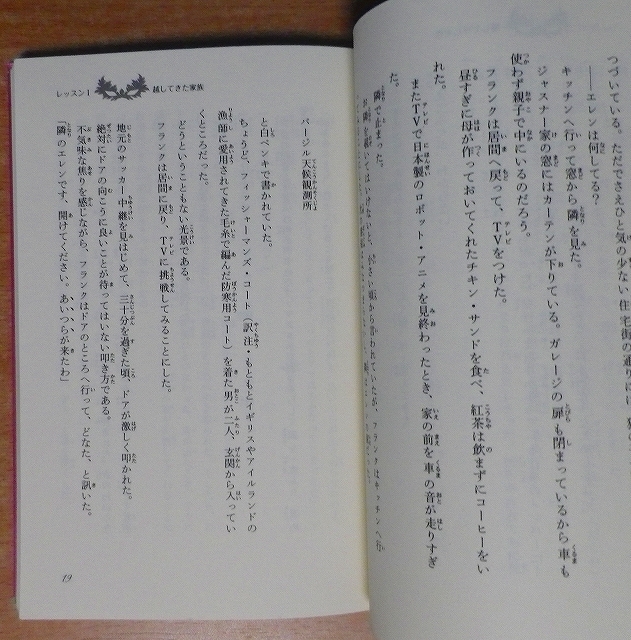 つづいている。ただでさえひと気の少ない住宅街の通りには、
――エレンは何してる?
キッチンへ行って窓から隣を見た。
ジャスナー家の窓にはカーテンが下りている。ガレージの扉も閉まっているから車も
使わず親子で中にいるのだろう。
フランクは居間へ戻って、TVをつけた。
昼すぎに母が作っておいてくれたチキン・サンドを食べ、紅茶は飲まずにコーヒーをい
れた。
またTVで日本製のロボット・アニメを見終わったとき、家の前を車の音が走りすぎ
た。
隣で止まった。
レッスン1 越してきた家族
バージル天候観測所
と白ペンキで書かれていた。
ちょうど、フィッシャーマンズ・コート(訳注・もともとイギリスやアイルランドの
漁師に愛用されてきた毛糸で編んだ防寒用コート)を着た男が二人、玄関から入ってい
くところだった。
どうということもない光景である。
フランクは居間に戻り、TVに挑戦してみることにした。
地元のサッカー中継を見はじめて、三十分を過ぎた頃、ドアが激しく叩かれた。
絶対にドアの向こうに良いことが待ってはいない叩き方である。
不気味な焦りを感じながら、フランクはドアのところへ行って、どなた、と訊いた。
「隣のエレンです、開けてください。あいつらが来たわ」
19